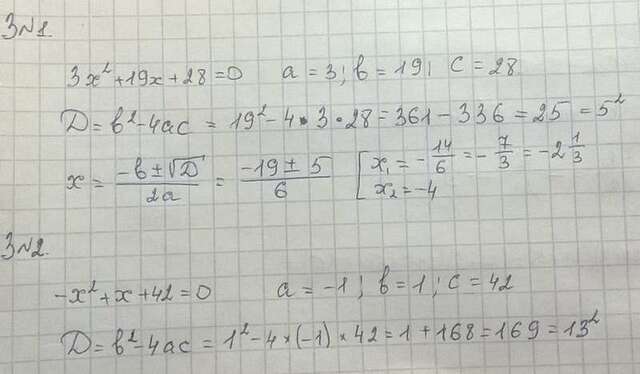 З№1.
3x²+19x+28=0 a=3; в=19; c=28
Д=в²-4ac = 19²-4•3•28=361-336=25=5²
x = (-в±√Д)/2a = (-19±5)/6 [x₁=-14/6=-7/3=-2 1/3
x₂=-4
З№2.
-x²+x+42=0 a=-1; в=1; c=42
Д=в²-4ac=1²-4×(-1)×42=1+168=169=13²